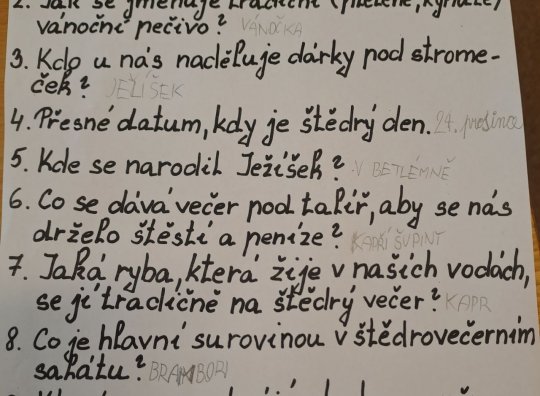 2. Jak se jmenuje tradiční (pletené, kynuté)
vánoční pečivo? VÁNOČKA
3. Kdo u nás naděluje dárky pod strome-
ček? JEŽÍŠEK
4. Přesné datum, kdy je štědrý den. 24. prosince
5. Kde se narodil Ježíšek? V BETLÉMNĚ
6. Co se dává večer pod talíř, aby se nás
drželo štěstí a peníze? KAPŘÍ ŠUPINY
7. Jaká ryba, která žije v našich vodách,
se jí tradičně na štědrý večer? KAPR
8. Co je hlavní surovinou v štědrovečerním
salátu? BRAMBORY